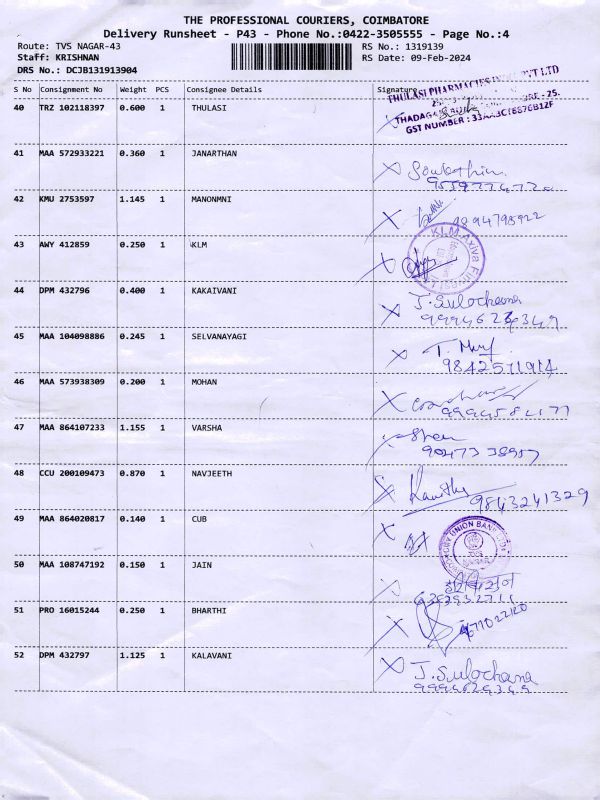 THE PROFESSIONAL COURIERS, COIMBATORE
Delivery Runsheet - P43 - Phone No.:0422-3505555 - Page No.:4
Route: TVS NAGAR-43 RS No.: 1319139
Staff: KRISHNAN RS Date: 09-Feb-2024
DRS No.: DCJB131913904
S No Consignment No Weight PCS Consignee Details Signature
THULASI PHARMACIES
40 TRZ 102118397 0.600 1 THULASI
GST NUMBER :
41 MAA 572933221 0.360 1 JANARTHAN
42 KMU 2753597 1.145 1 MANONMNI
9894795922
43 AWY 412859 0.250 1 KLM
KLM Axiva
44 DPM 432796 0.400 1 KAKAIVANI
J. Sulochana
45 MAA 104098886 0.245 1 SELVANAYAGI
46 MAA 573938309 0.200 1 MOHAN
47 MAA 864107233 1.155 1 VARSHA
48 CCU 200109473 0.870 1 NAVJEETH
9843241329
49 MAA 864020817 0.140 1 CUB
CITY UNION BANK
50 MAA 108747192 0.150 1 JAIN
51 PRO 16015244 0.250 1 BHARTHI
52 DPM 432797 1.125 1 KALAVANI
J. Sulochana